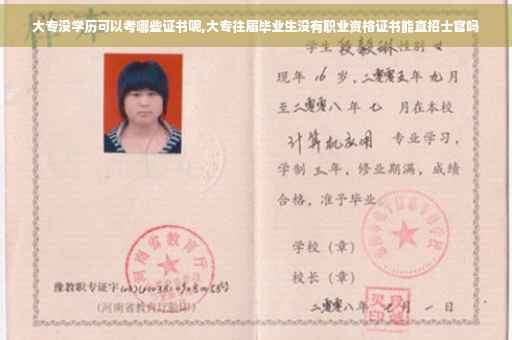 大专没学历可以考哪些证书呢,大专往届毕业生没有职业资格证书能直招士官吗
学生 段毅琳 性别 女
现年 16 岁，二零零五年 九月
至二零零八年 七 月在本校
计算机应用 专业学习，
学制 三 年，修业期满，成绩
合格，准予毕业
学校（章）
河南省教育厅
校长（章）
豫教职专证字
(河南省教育厅验印)
二零零八年 七 月 一 日